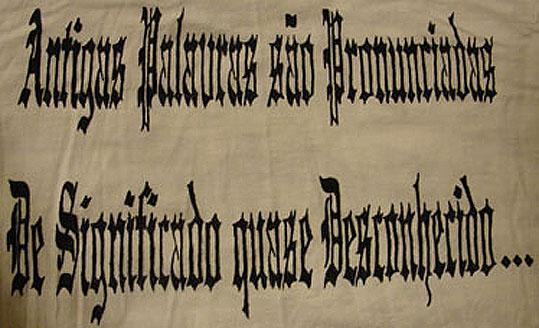 Antigas Palavras são Pronunciadas
De Significado quase Desconhecido...